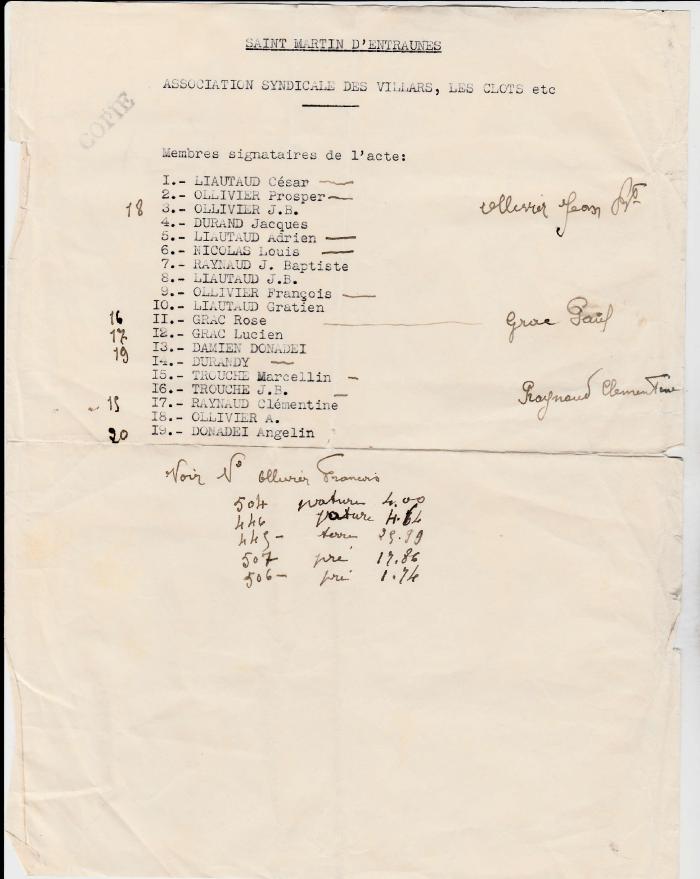 SAINT MARTIN D'ENTRAUNES
ASSOCIATION SYNDICALE DES VILLARS, LES CLOTS etc
COPIE
Membres signataires de l'acte:
I.- LIAUTAUD César
2.- OLLIVIER Prosper
18 3.- OLLIVIER J.B. Ollivier Jean Bte
4.- DURAND Jacques
5.- LIAUTAUD Adrien
6.- NICOLAS Louis
7.- RAYNAUD J. Baptiste
8.- LIAUTAUD J.B.
9.- OLLIVIER François
I0.- LIAUTAUD Gratien
16 II.- GRAC Rose Grac Paul
17 I2.- GRAC Lucien
19 I3.- DAMIEN DONADEI
I4.- DURANDY
I5.- TROUCHE Marcellin
I6.- TROUCHE J.B.
15 I7.- RAYNAUD Clémentine Raynaud Clementine
I8.- OLLIVIER A.
20 I9.- DONADEI Angelin
Voir N° Ollivier Francois
504 pature 4.00
446 pature 4.64
445 - terre 29.89
507 pré 17.86
506 - pré 1.74